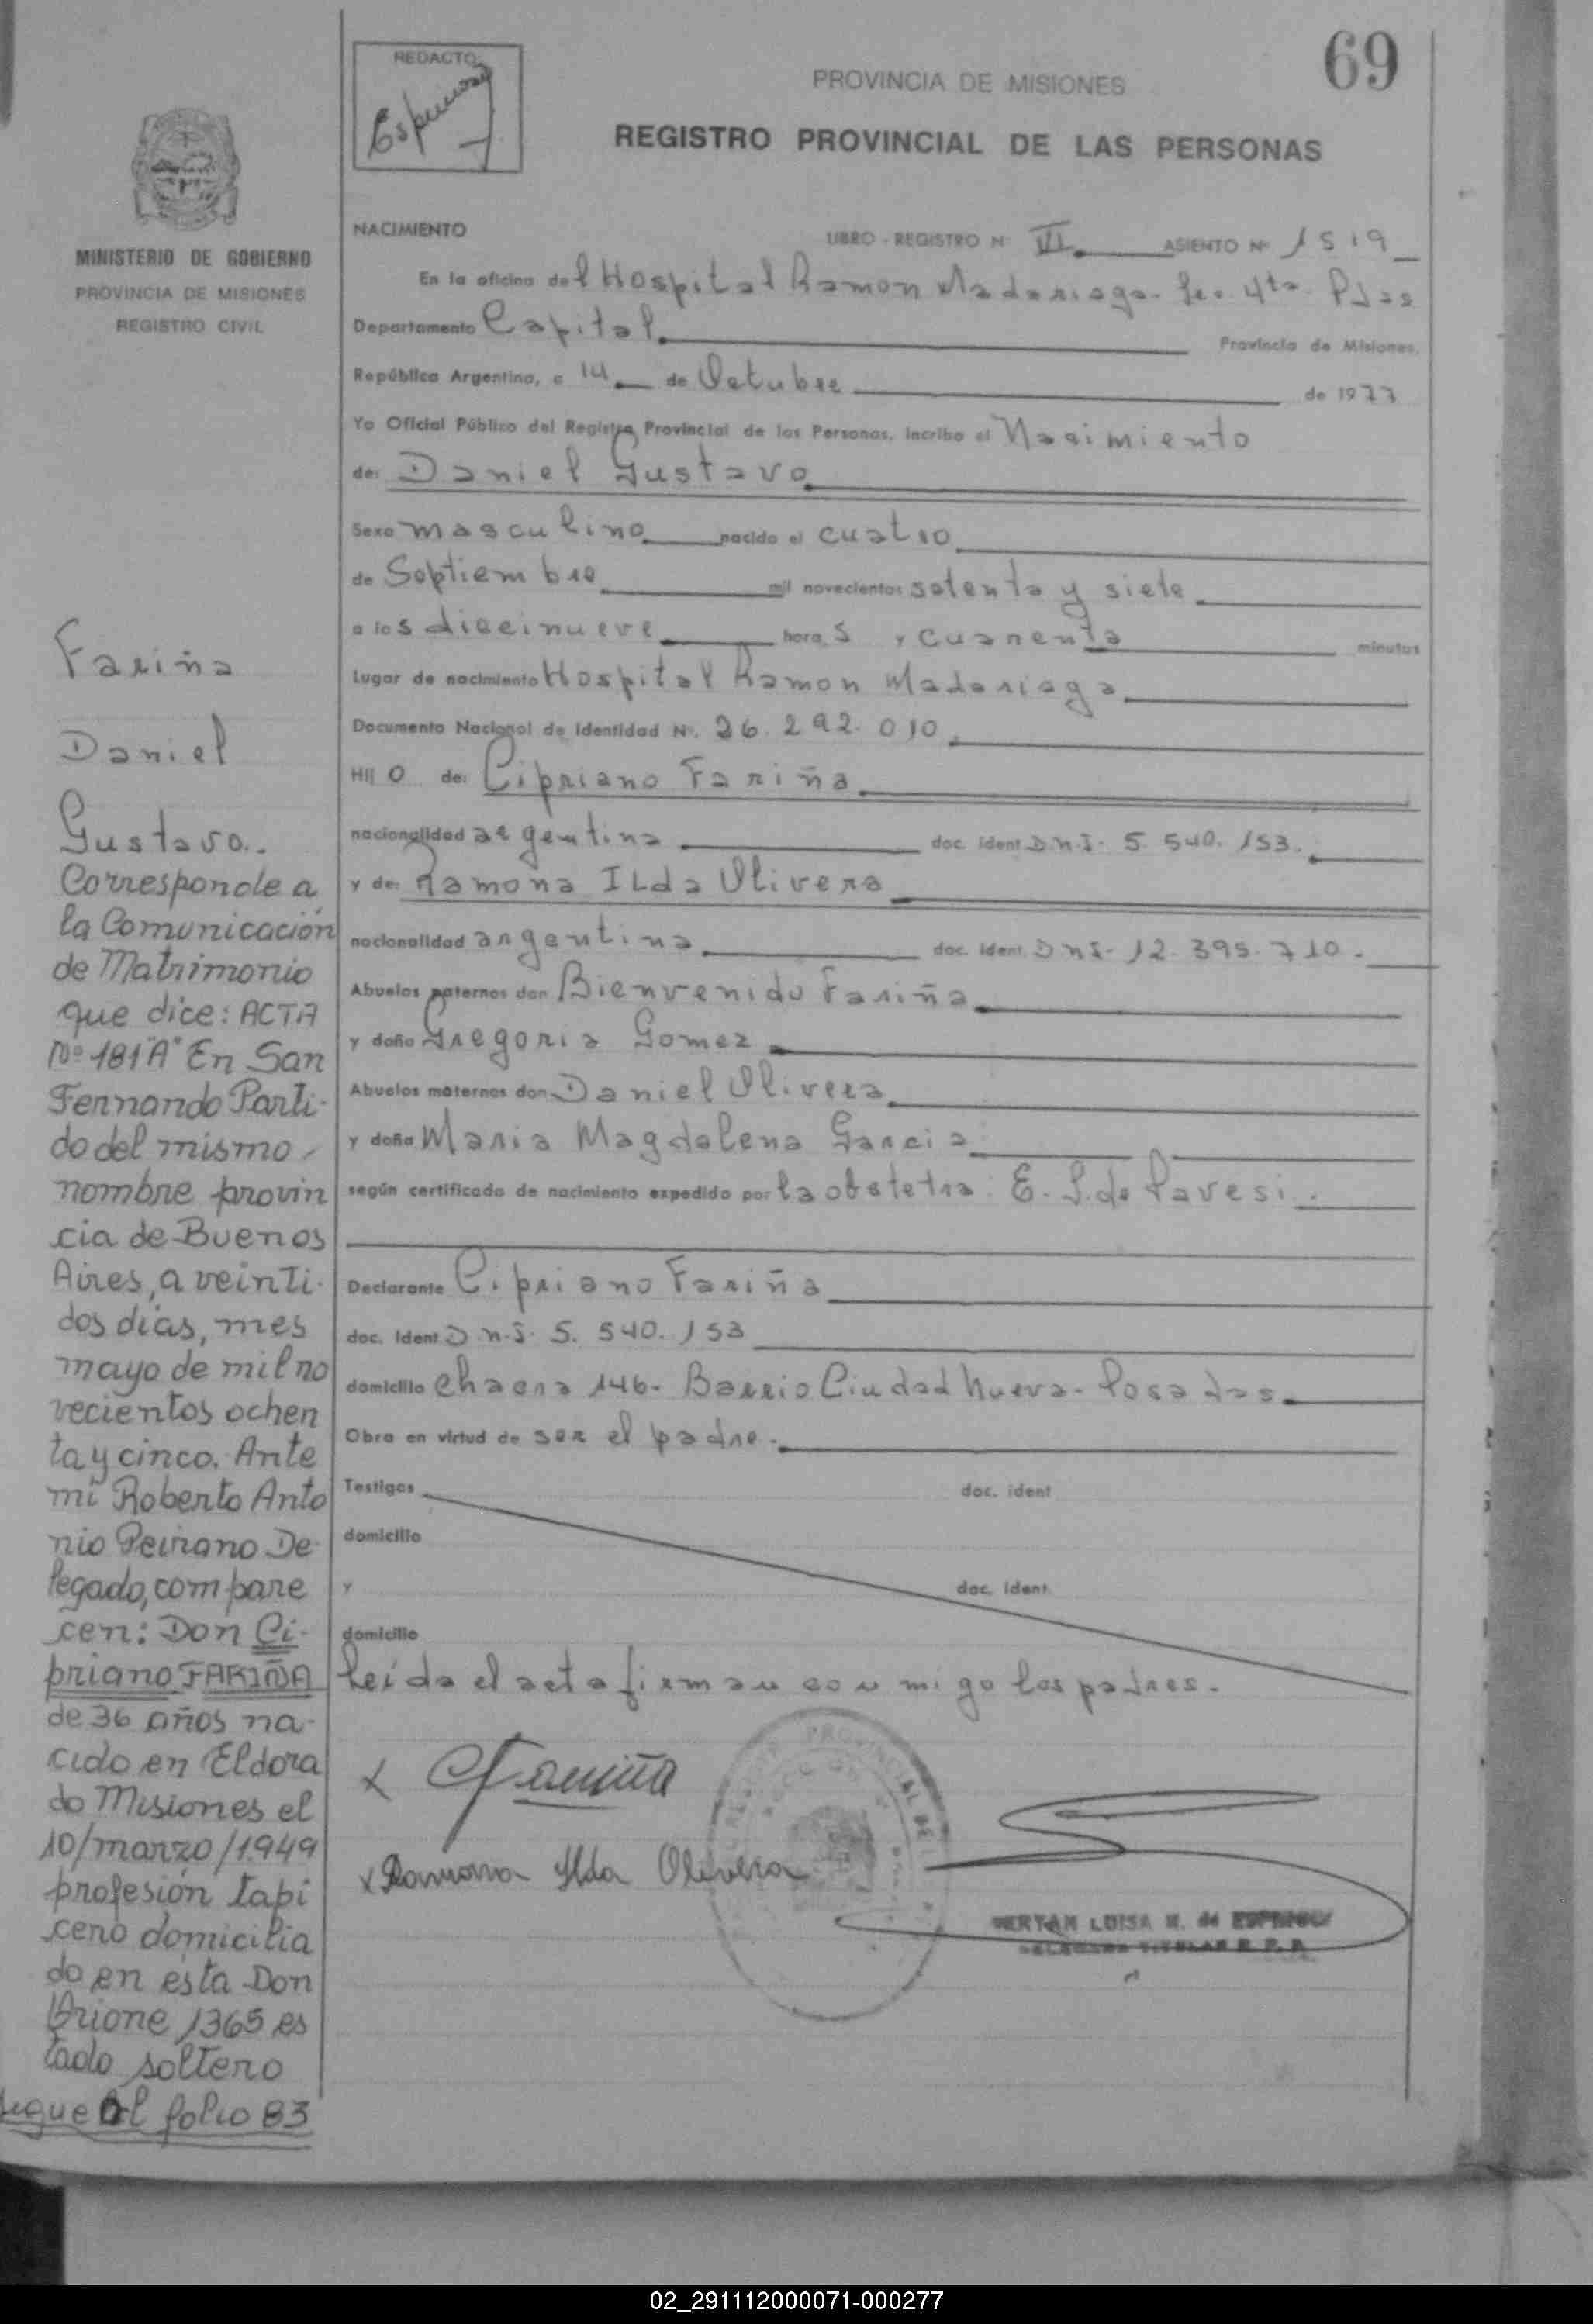 69
REDACTO
PROVINCIA DE MISIONES
REGISTRO PROVINCIAL DE LAS PERSONAS
MINISTERIO DE GOBIERNO
PROVINCIA DE MISIONES
REGISTRO CIVIL
Fariña
Daniel
Gustavo..
Corresponde a
la Comunicación
de Matrimonio
que dice: ACTA
Nº 181"A" En San
Fernando Parti-
do del mismo
nombre provin
cia de Buenos
Aires, a veinti-
dos días, mes
mayo de mil no
vecientos ochen
ta y cinco. Ante
mi Roberto Anto
nio Peirano De
legado, compare
cen: Don Ci-
priano FARIÑA
de 36 años na-
cido en Eldora
do Misiones el
10/marzo/1949
profesión tapi
cero domicilia
do en esta Don
Orione 1365 es
tado soltero
segue al folio 83
NACIMIENTO LIBRO - REGISTRO Nº VI ASIENTO Nº 1519
En la oficina del Hospital Ramon Madariaga - Sec. 4ta - Pdas
Departamento Capital Provincia de Misiones,
República Argentina, a 14 de Octubre de 1977
Yo Oficial Público del Registro Provincial de las Personas, incribo el Nacimiento
de: Daniel Gustavo
Sexo masculino nacido el cuatro
de Septiembre mil novecientos setenta y siete
a las diecinueve horas y cuarenta minutos
Lugar de nacimiento Hospital Ramon Madariaga
Documento Nacional de Identidad Nº. 26.292.010
Hijo de: Cipriano Fariña
nacionalidad argentina doc. ident D.N.I. 5.540.153.
y de: Ramona ILda Olivera
nacionalidad argentina doc. ident. DNI- 12.395.710.
Abuelos paternos don Bienvenido Fariña
y doña Gregoria Gomez
Abuelos maternos don Daniel Olivera
y doña Maria Magdalena Garcia
según certificado de nacimiento expedido por la obstetra E. S. de Pavesi.
Declarante Cipriano Fariña
doc. ident D.N.I. 5.540.153
domicilio Chacra 146- Barrio Ciudad Nueva- Posadas
Obra en virtud de ser el padre.
Testigos doc. ident
domicilio
y doc. ident.
domicilio
Leida el acta firman conmigo los padres.
x CFariña
x Ramona Ilda Olivera
LUISA
02_291112000071-000277